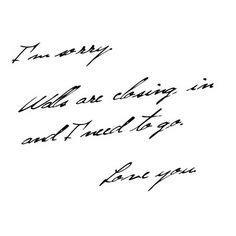 I'm sorry.
Walls are closing in
and I need to go.
Love you.